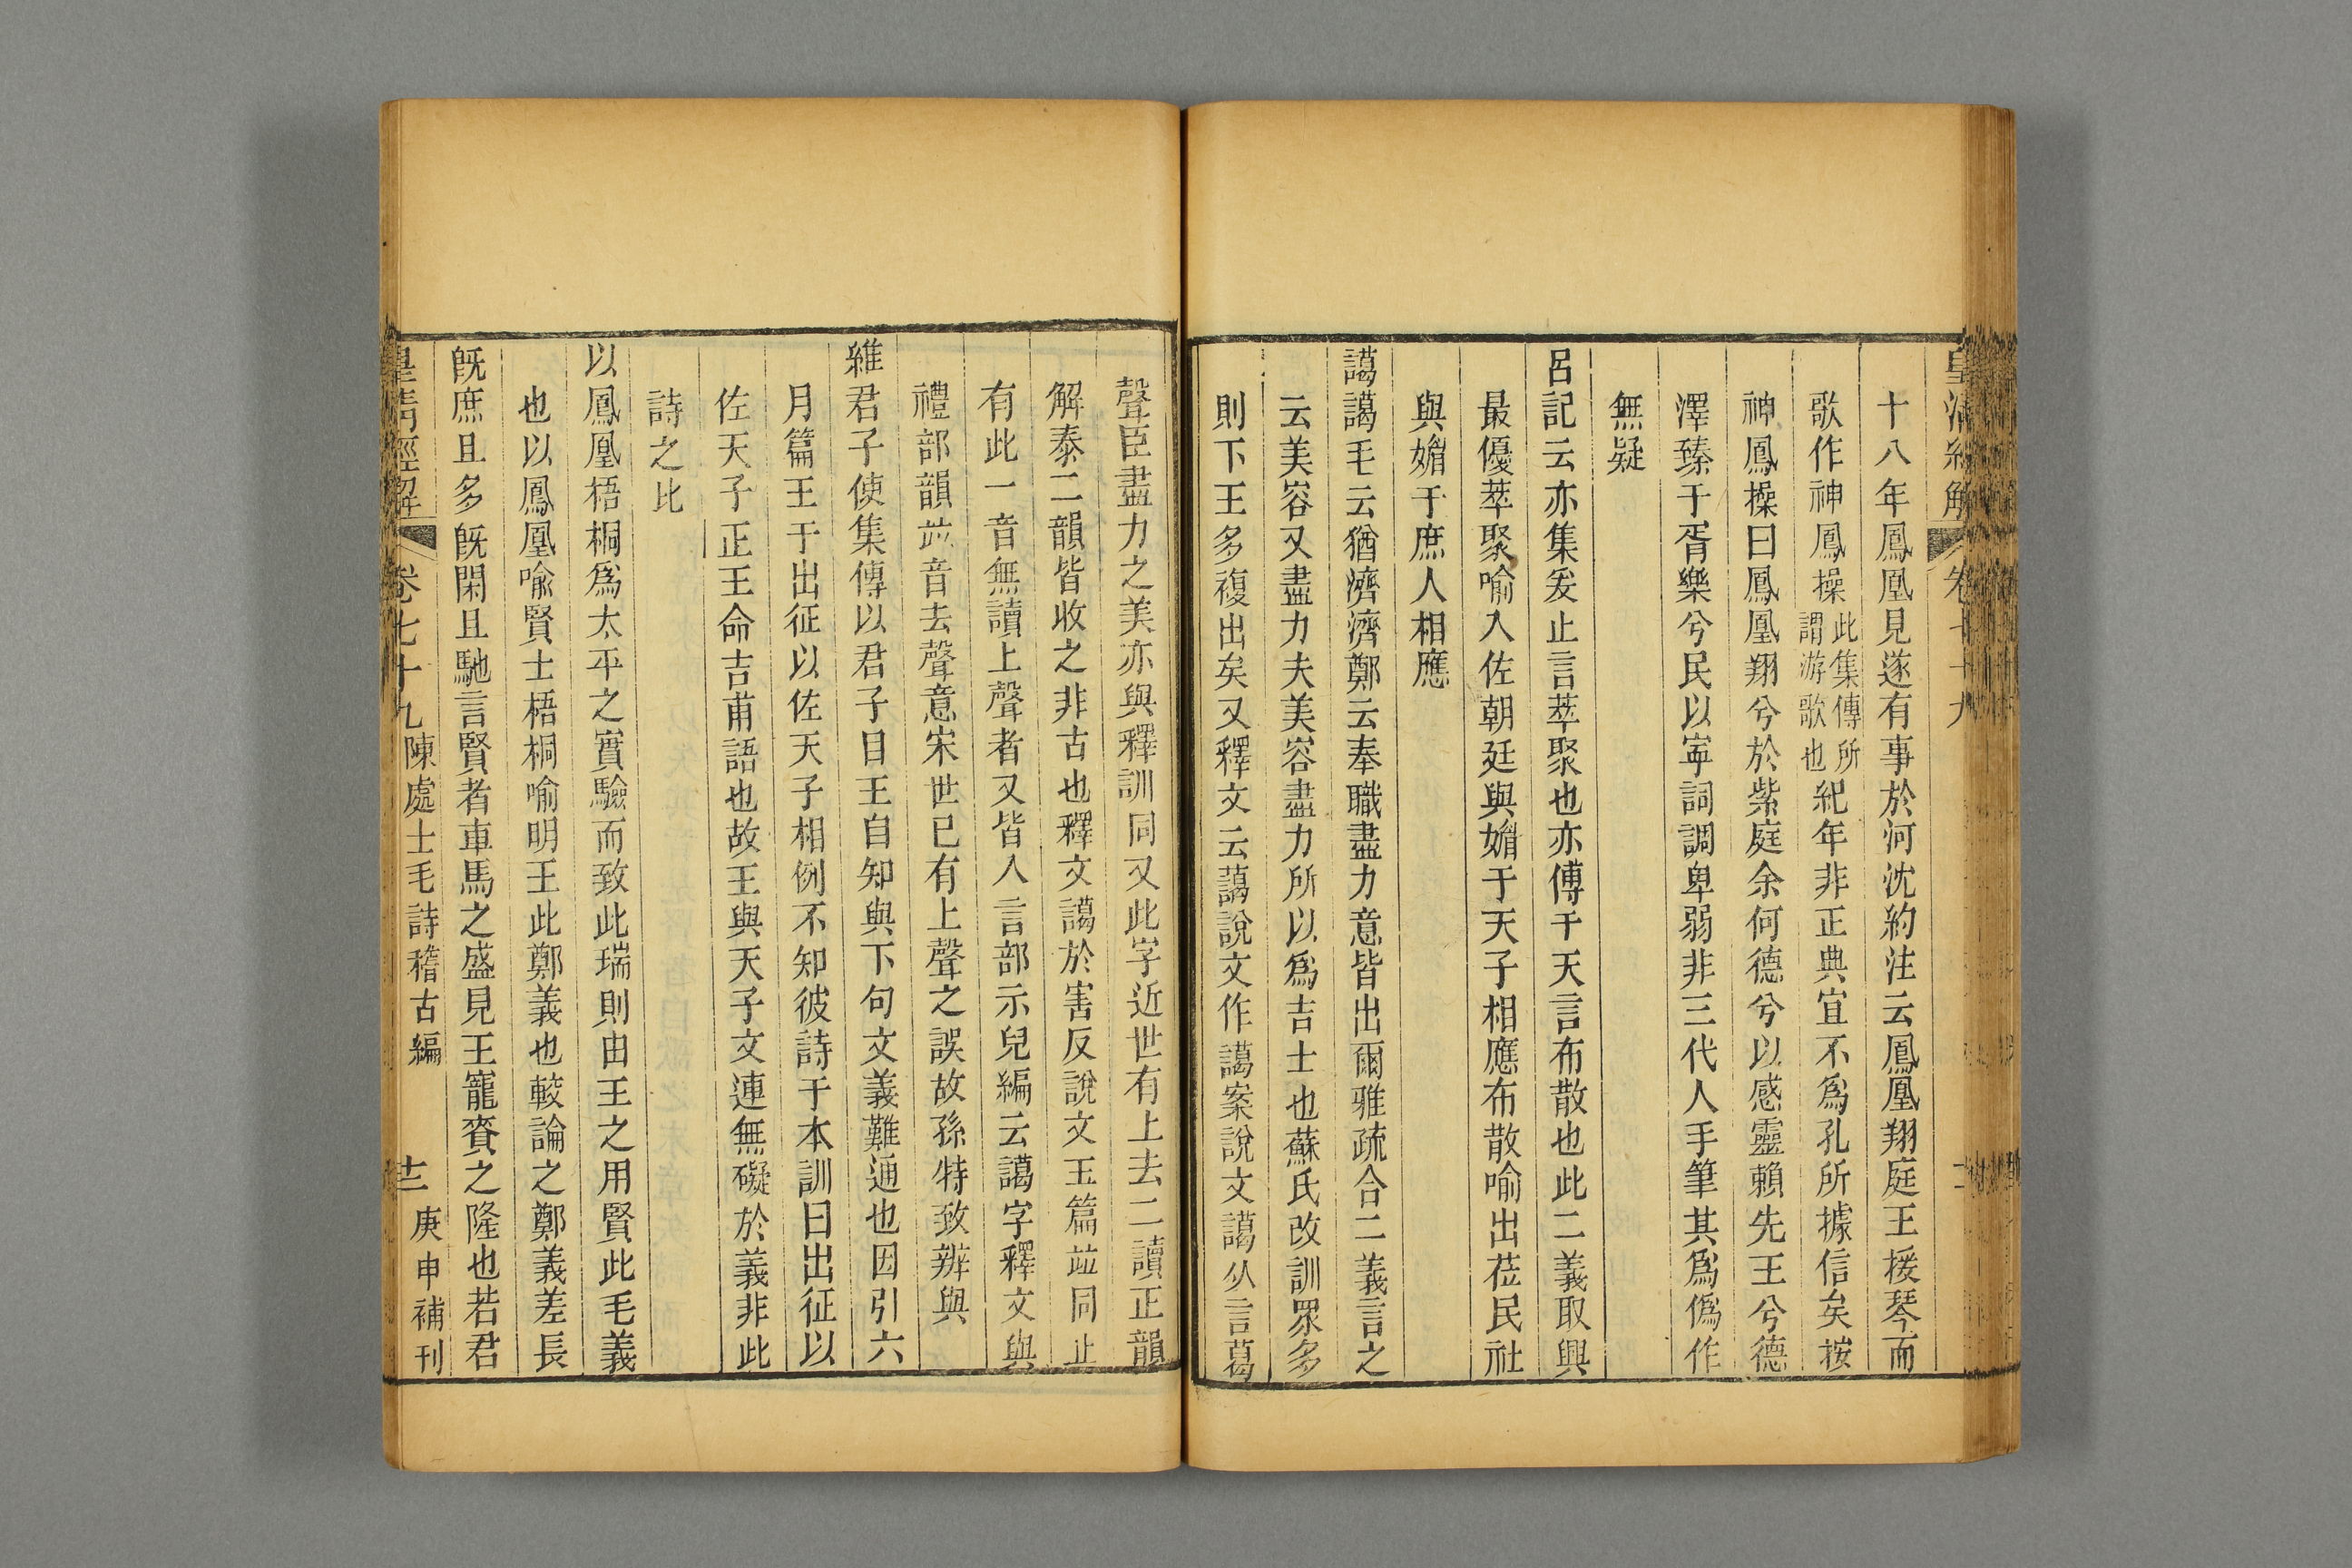 十八年鳳凰見遂有事於河沈約注云鳳凰翔庭王援琴而
歌作神鳳操此集傳所謂游歌也紀年非正典宜不爲孔所據信矣按
神鳳操曰鳳凰翔兮於紫庭余何德兮以感靈賴先王兮德
澤臻于胥樂兮民以寍詞調卑弱非三代人手筆其爲僞作
無疑
呂記云亦集爰止言萃聚也亦傅于天言布散也此二義取興
最優萃聚喻入佐朝廷與媚于天子相應布散喻出莅民社
與媚于庶人相應
藹藹毛云猶濟濟鄭云奉職盡力意皆出爾雅疏合二義言之
云美容又盡力夫美容盡力所以爲吉士也蘇氏改訓眾多
則下王多複出矣又釋文云藹說文作譪案說文譪从言葛
聲臣盡力之美亦與釋訓同又此字近世有上去二讀正韻
解泰二韻皆收之非古也釋文譪於害反說文玉篇竝同止
有此一音無讀上聲者又皆入言部示兒編云譪字釋文與
禮部韻竝音去聲意宋世已有上聲之誤故孫特致辨與
維君子使集傳以君子目王自知與下句文義難通也因引六
月篇王于出征以佐天子相例不知彼詩于本訓曰出征以
佐天子正王命吉甫語也故王與天子文連無礙於義非此
詩之比
以鳳凰梧桐爲太平之實驗而致此瑞則由王之用賢此毛義
也以鳳凰喻賢士梧桐喻明王此鄭義也較論之鄭義差長
旣庶且多旣閑且馳言賢者車馬之盛見王寵賚之隆也若君
皇清經解 卷七十九 陳處士毛詩稽古編 十二 庚申補刊